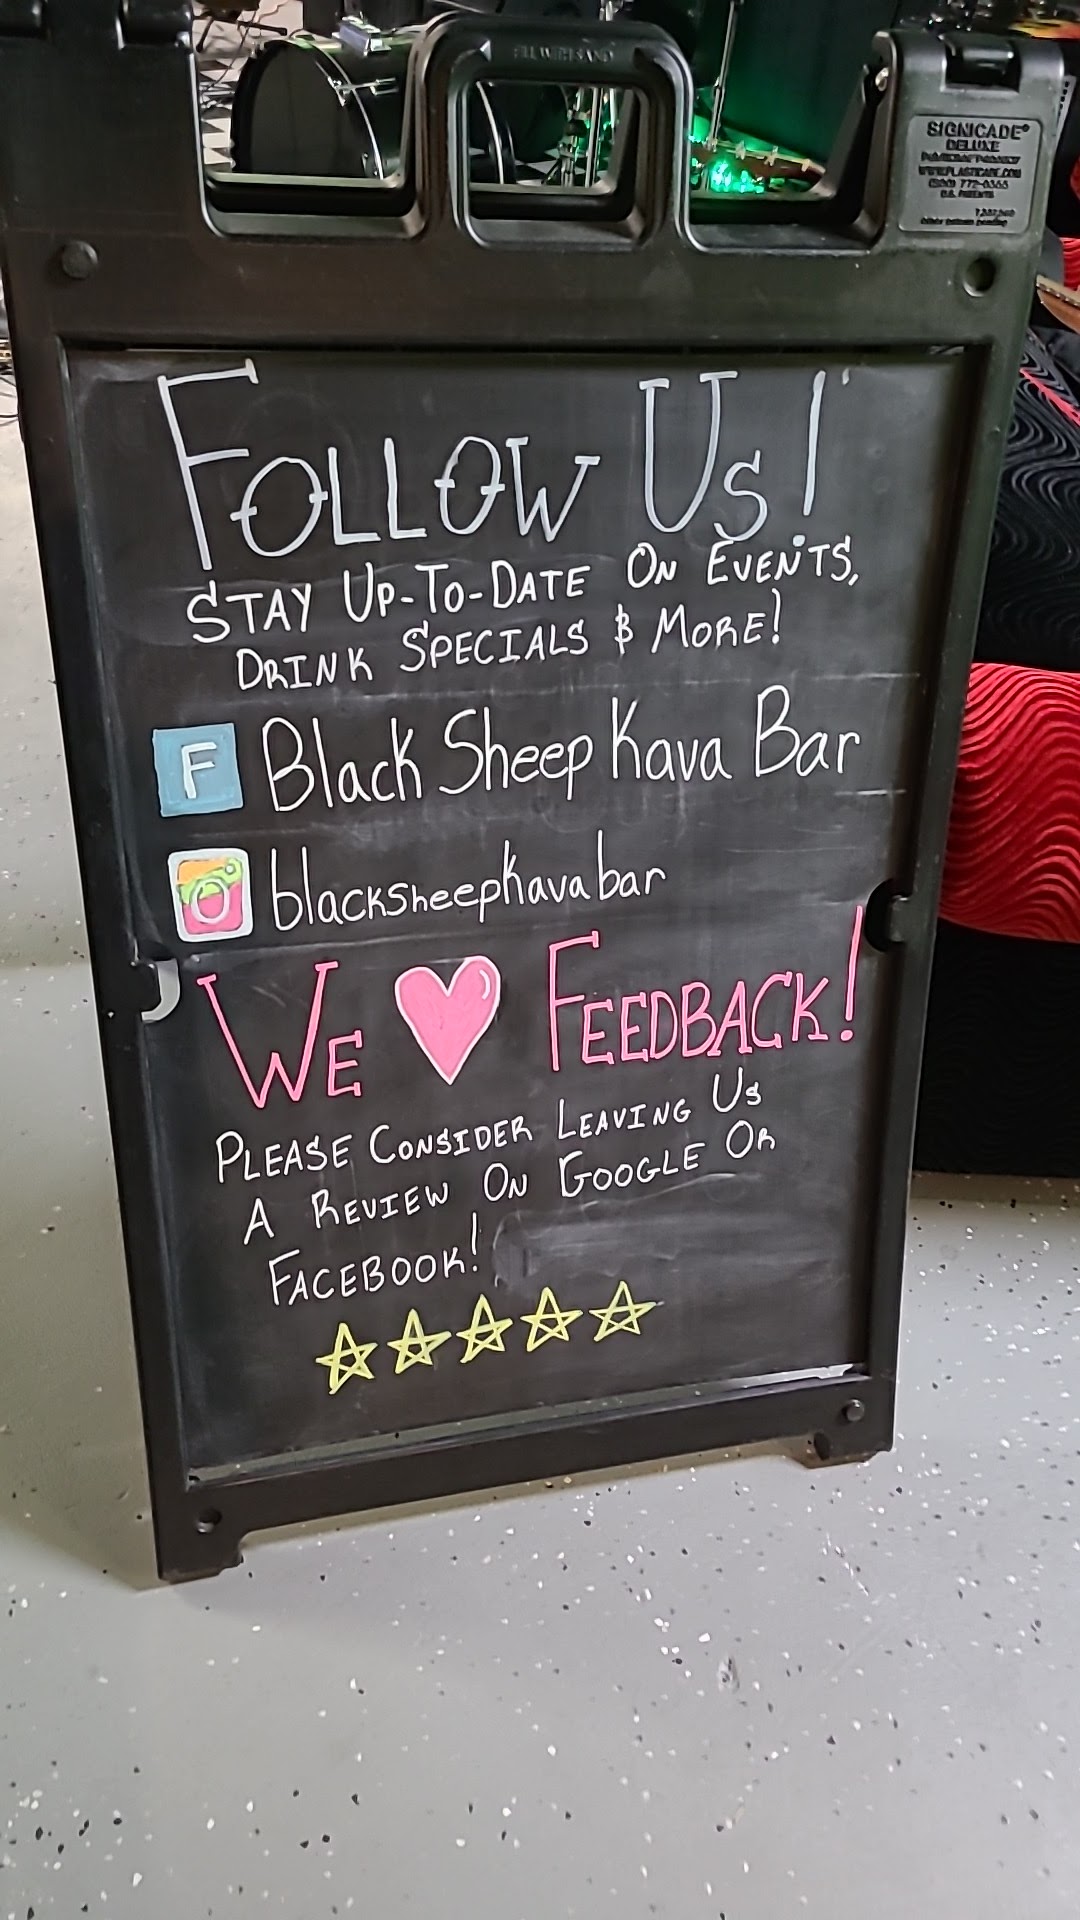 FILL WITH SAND
SIGNICADE®
DELUXE
WWW.PLASTICADE.COM
U.S. PATENTS
FOLLOW US!
STAY UP-TO-DATE ON EVENTS,
DRINK SPECIALS & MORE!
F Black Sheep Kava Bar
blacksheepkavabar
WE FEEDBACK!
PLEASE CONSIDER LEAVING US
A REVIEW ON GOOGLE OR
FACEBOOK!